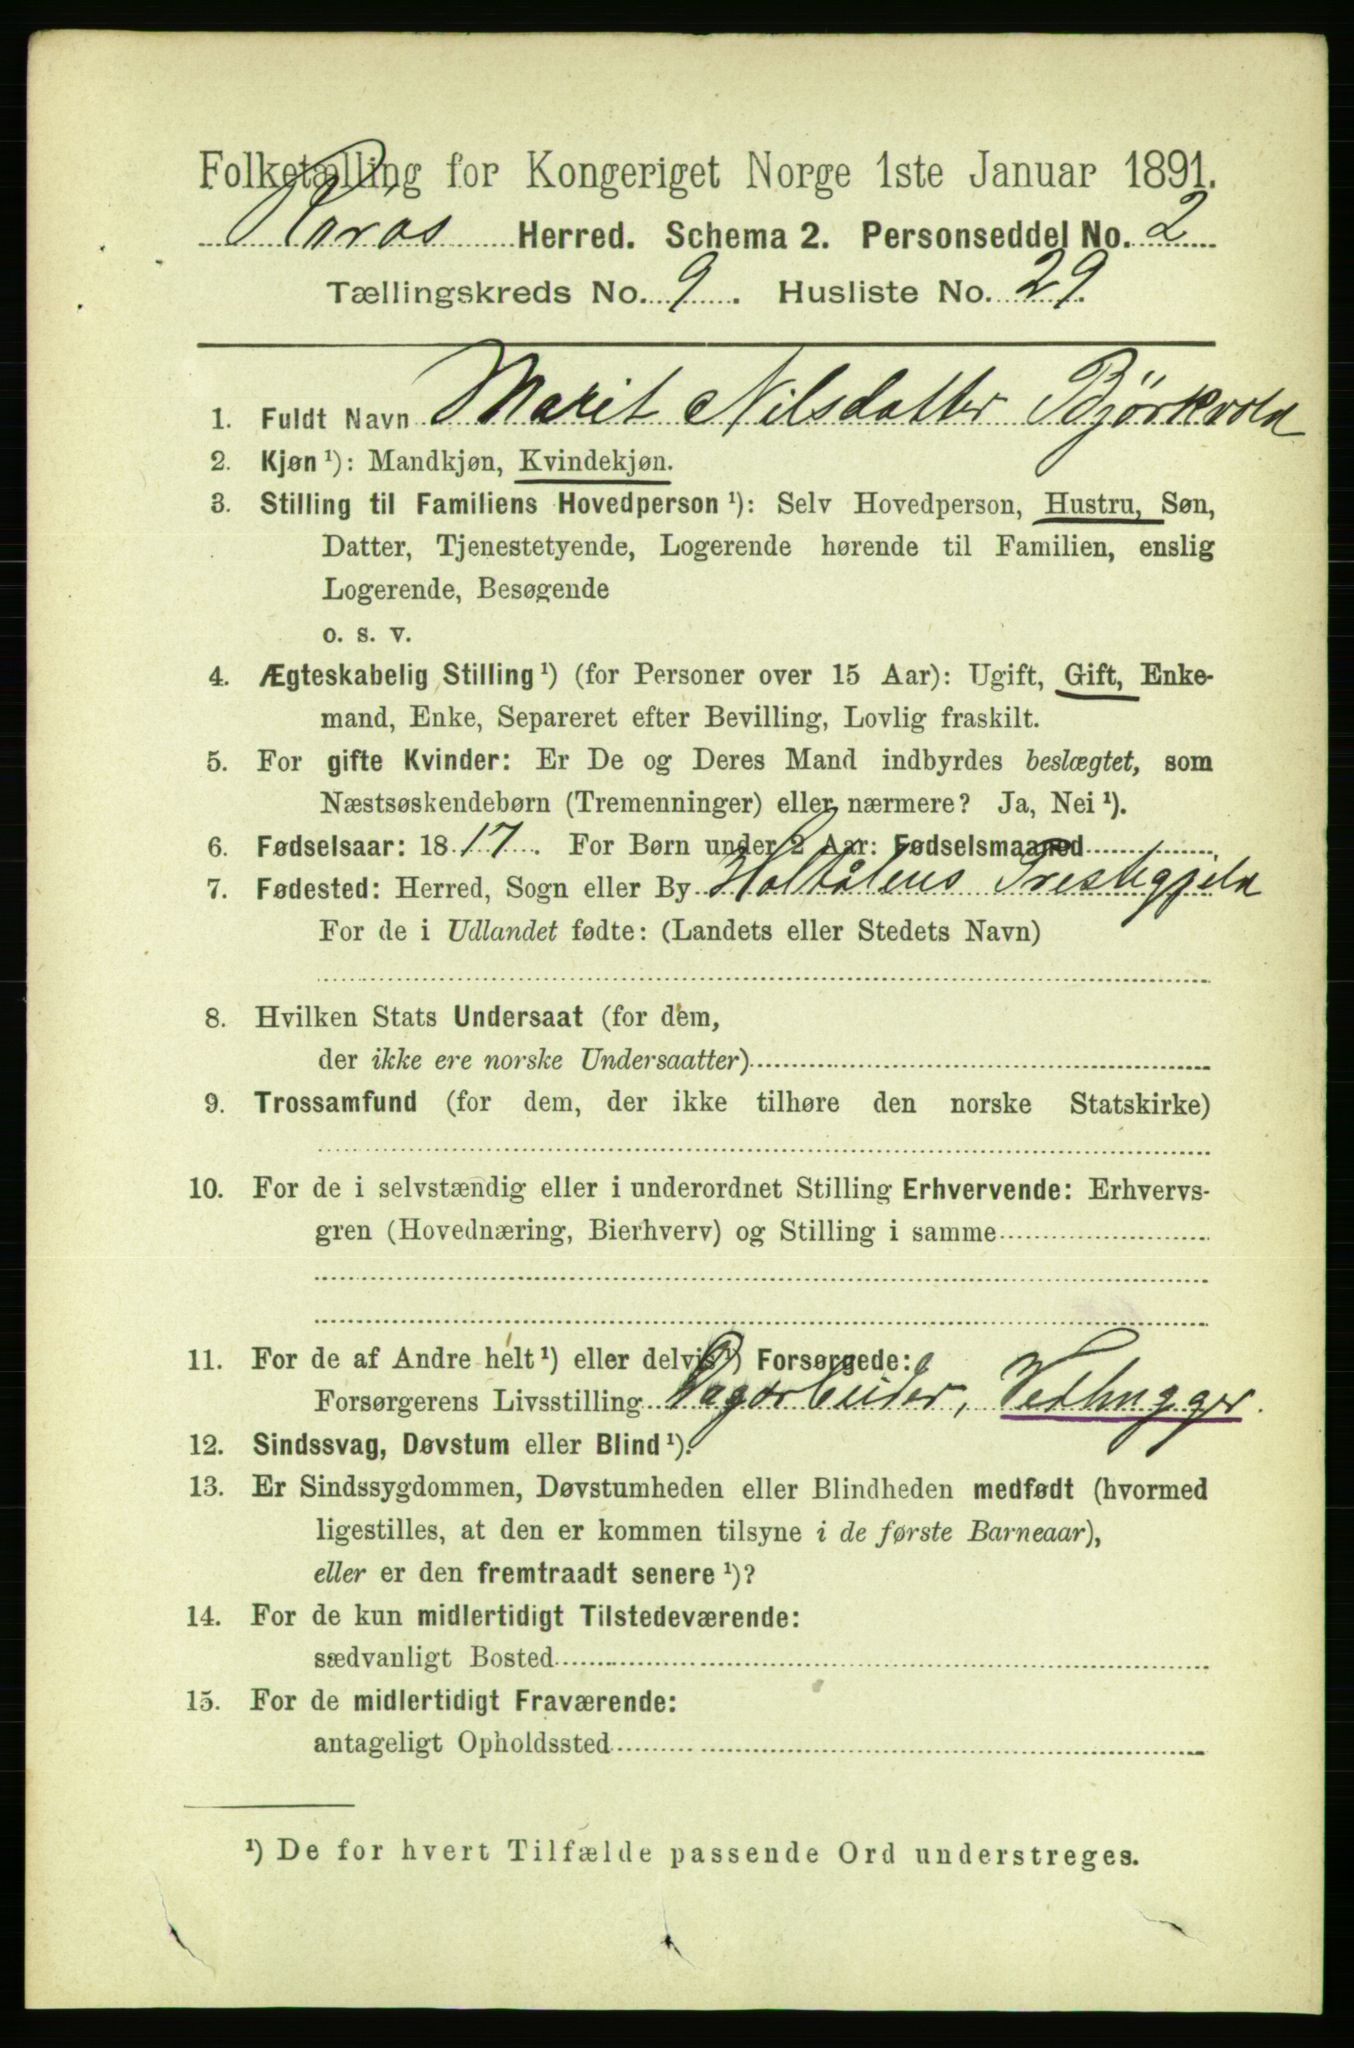 Folketælling for Kongeriget Norge 1ste Januar 1891.
Røros Herred. Schema 2. Personseddel No. 2
Tællingskreds No. 9. Husliste No. 29.
1. Fuldt Navn Marit Nilsdatter Bjørkvold
2. Kjøn ¹): Mandkjøn, Kvindekjøn.
3. Stilling til Familiens Hovedperson ¹): Selv Hovedperson, Hustru, Søn,
Datter, Tjenestetyende, Logerende hørende til Familien, enslig
Logerende, Besøgende
o. s. v.
4. Ægteskabelig Stilling ¹) (for Personer over 15 Aar): Ugift, Gift, Enke-
mand, Enke, Separeret efter Bevilling, Lovlig fraskilt.
5. For gifte Kvinder: Er De og Deres Mand indbyrdes beslægtet, som
Næstsøskendebørn (Tremenninger) eller nærmere? Ja, Nei ¹).
6. Fødselsaar: 1817. For Børn under 2 Aar: Fødselsmaaned
7. Fødested: Herred, Sogn eller By Holtålens Prestegjeld
For de i Udlandet fødte: (Landets eller Stedets Navn)
8. Hvilken Stats Undersaat (for dem,
der ikke ere norske Undersaatter)
9. Trossamfund (for dem, der ikke tilhøre den norske Statskirke)
10. For de i selvstændig eller i underordnet Stilling Erhvervende: Erhvervs-
gren (Hovednæring, Bierhverv) og Stilling i samme
11. For de af Andre helt ¹) eller delvis ¹) Forsørgede:
Forsørgerens Livsstilling Dagarbeider, Vedhugger.
12. Sindssvag, Døvstum eller Blind ¹).
13. Er Sindssygdommen, Døvstumheden eller Blindheden medfødt (hvormed
ligestilles, at den er kommen tilsyne i de første Barneaar),
eller er den fremtraadt senere ¹)?
14. For de kun midlertidigt Tilstedeværende:
sædvanligt Bosted
15. For de midlertidigt Fraværende:
antageligt Opholdssted
¹) De for hvert Tilfælde passende Ord understreges.